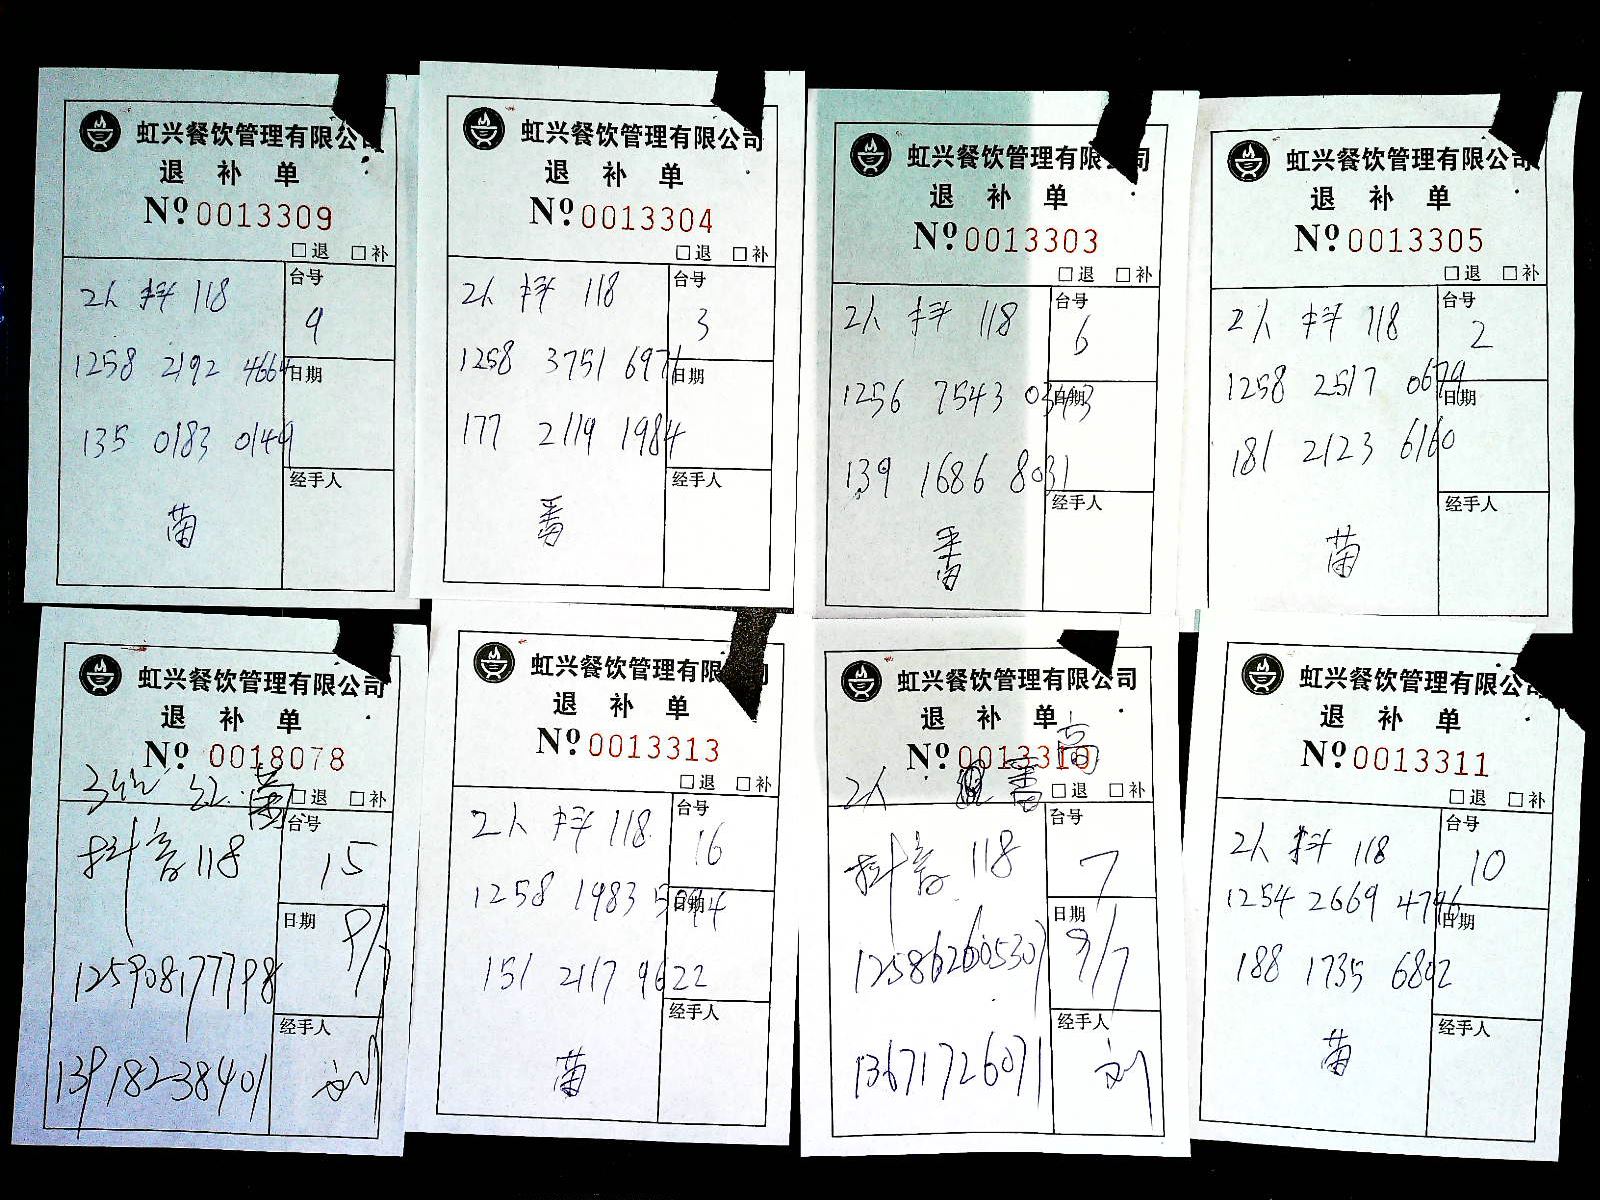 虹兴餐饮管理有限公司
退 补 单
Nº 0013309
□退 □补
2人 抖 118
台号
9
1258 2192 4664
日期
135 0183 0149
经手人
菌
虹兴餐饮管理有限公司
退 补 单
Nº 0013304
□退 □补
2人 抖 118
台号
3
1258 3751 6971
日期
177 2119 1984
经手人
番
虹兴餐饮管理有限公司
退 补 单
Nº 0013303
□退 □补
2人 抖 118
台号
6
1256 7543 0343
日期
139 1686 8031
经手人
番
虹兴餐饮管理有限公司
退 补 单
Nº 0013305
□退 □补
2人 抖 118
台号
2
1258 2517 0679
日期
181 2123 6160
经手人
菌
虹兴餐饮管理有限公司
退 补 单
Nº 0018078
□退 □补
抖音118
台号
15
日期
9/7
125908177798
经手人
13918238401
刘
虹兴餐饮管理有限公司
退 补 单
Nº 0013313
□退 □补
2人 抖 118
台号
16
1258 1983
日期
151 2117 9622
经手人
菌
虹兴餐饮管理有限公司
退 补 单
Nº 0013310
2人 番
□退 □补
抖音 118
台号
7
日期
9/7
125862605307
经手人
13671726071
刘
虹兴餐饮管理有限公司
退 补 单
Nº 0013311
□退 □补
2人 抖 118
台号
10
1254 2669 4796
日期
188 1735 6802
经手人
菌